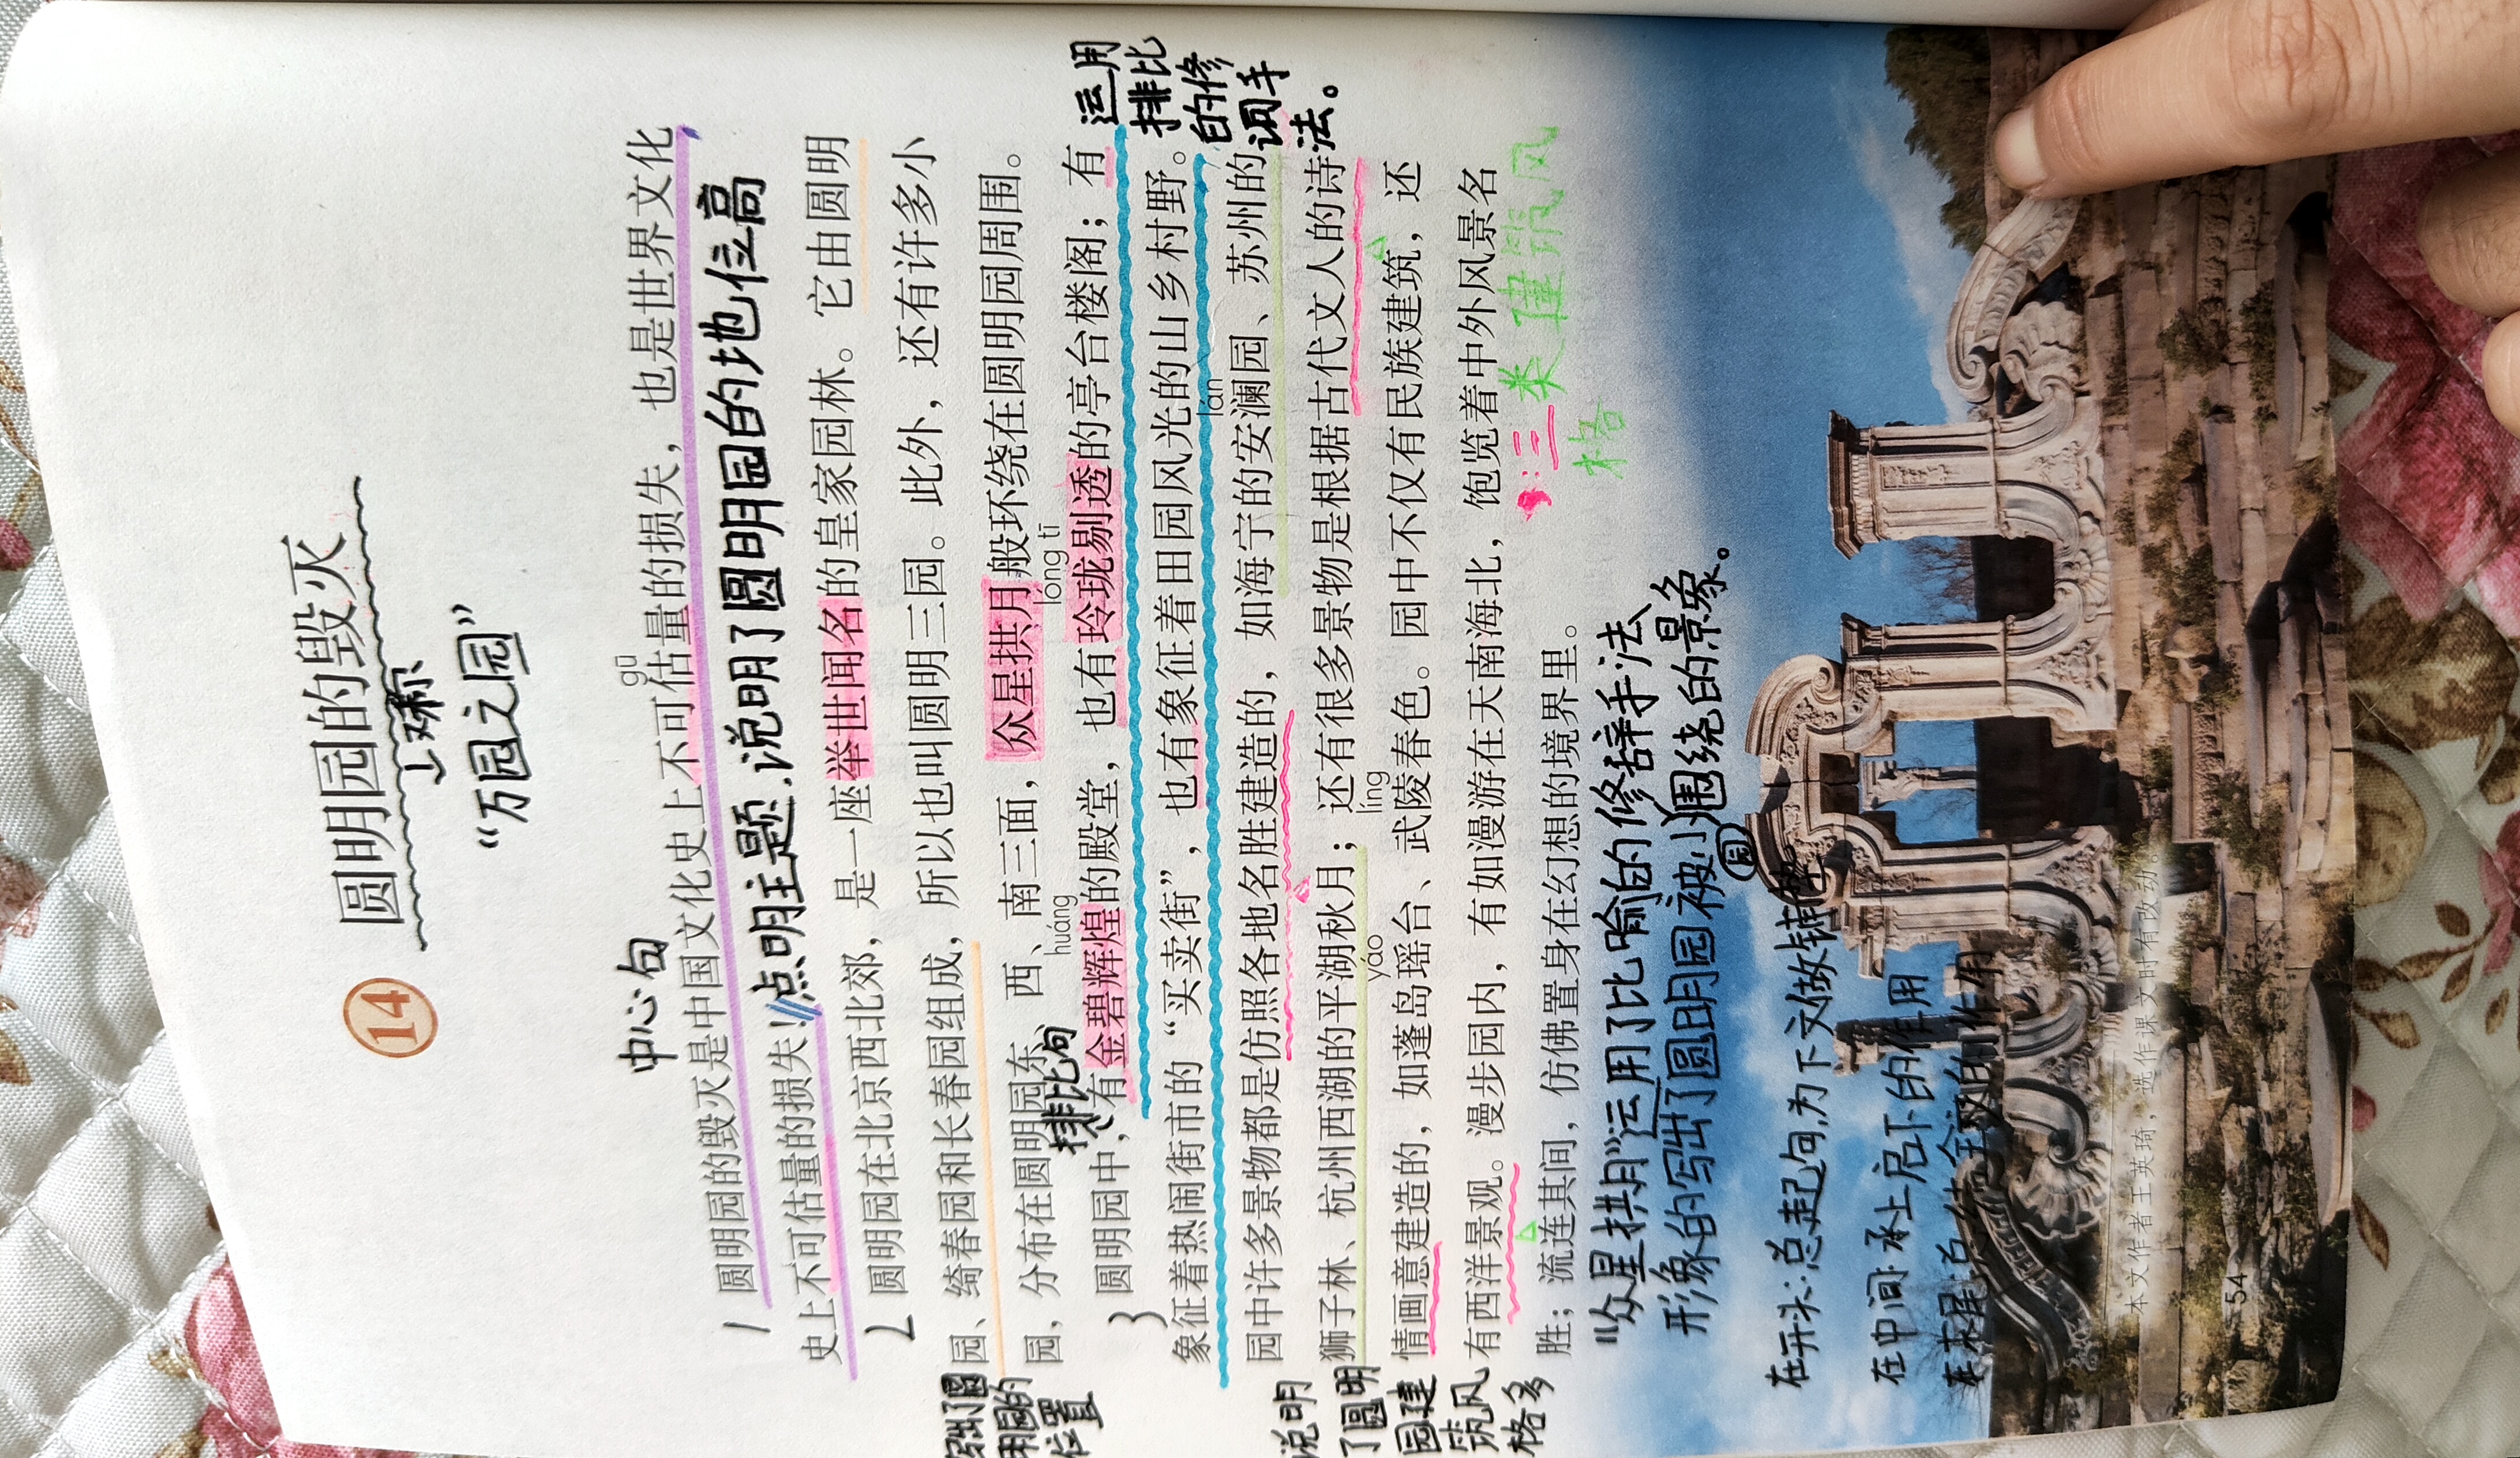 14 圆明园的毁灭
↳又称
“万园之园”
中心句
gū
1 圆明园的毁灭是中国文化史上不可估量的损失，也是世界文化
史上不可估量的损失！点明主题.说明了圆明园的地位高
2 圆明园在北京西北郊，是一座举世闻名的皇家园林。它由圆明
园、绮春园和长春园组成，所以也叫圆明三园。此外，还有许多小
园，分布在圆明园东、西、南三面，众星拱月般环绕在圆明园周围。
写出了圆
明园的
位置
排比句
huáng
lóng tī
3 圆明园中，有金碧辉煌的殿堂，也有玲珑剔透的亭台楼阁；有
象征着热闹街市的“买卖街”，也有象征着田园风光的山乡村野。
运用
排比
的修
词手
法。
lán
园中许多景物都是仿照各地名胜建造的，如海宁的安澜园、苏州的
狮子林、杭州西湖的平湖秋月；还有很多景物是根据古代文人的诗
yáo
líng
情画意建造的，如蓬岛瑶台、武陵春色。园中不仅有民族建筑，还
有西洋景观。漫步园内，有如漫游在天南海北，饱览着中外风景名
胜；流连其间，仿佛置身在幻想的境界里。
说明
了圆明
园建
筑风
格多
：三类建筑风
格
“众星拱月”运用了比喻的修辞手法
形象的写出了圆明园被小园围绕的景象。
在开头:总起句,为下文做铺垫
在中间:承上启下的作用
在末尾:总结全文的作用
本文作者王英琦，选作课文时有改动。
54